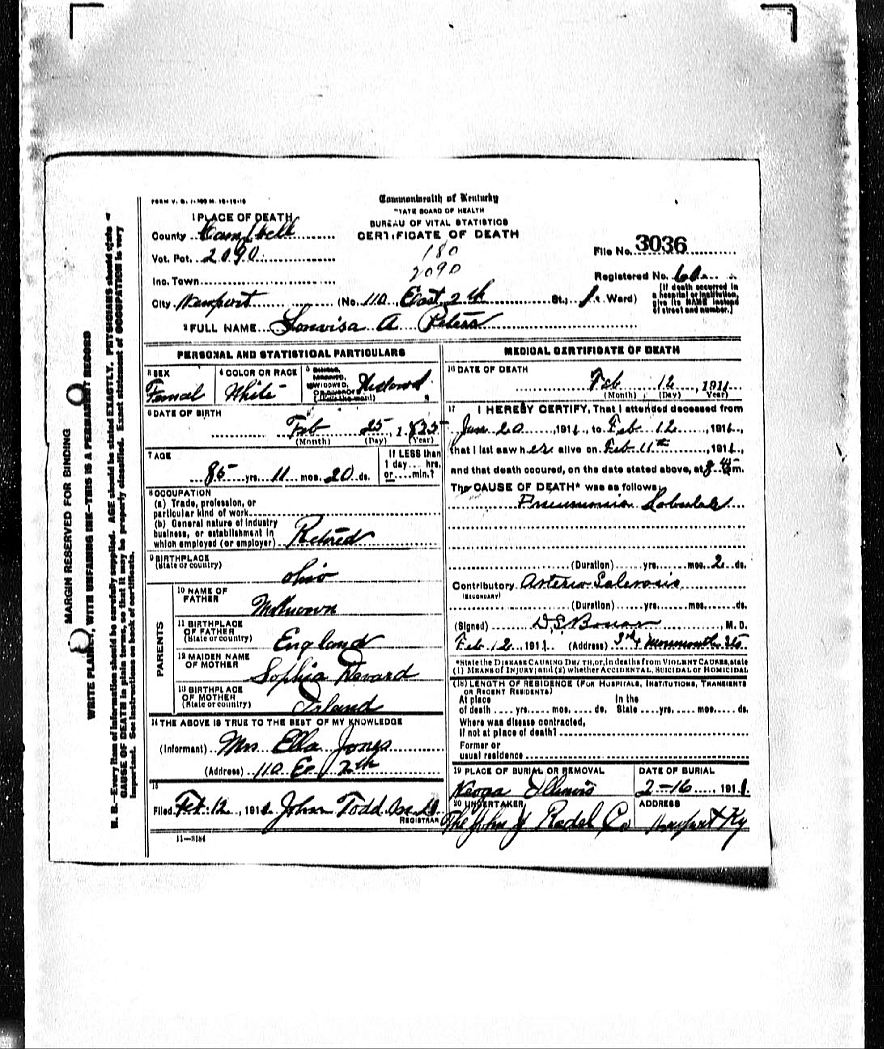 FORM V. S. 1-
Commonwealth of Kentucky
STATE BOARD OF HEALTH
BUREAU OF VITAL STATISTICS
CERTIFICATE OF DEATH
1 PLACE OF DEATH
County Campbell
Vot. Pct. 2090
180
2090
File No. 3036
Inc. Town
Registered No. 66
City Newport (No. 110 East 2th St.; 1st Ward)
[If death occurred in a hospital or institution, give its NAME instead of street and number.]
2 FULL NAME Lonvisa A Peters
PERSONAL AND STATISTICAL PARTICULARS
3 SEX Femail
4 COLOR OR RACE White
5 SINGLE, MARRIED, WIDOWED, OR DIVORCED (Write the word) Widowed
6 DATE OF BIRTH
Feb 25, 1825
(Month) (Day) (Year)
7 AGE
85 yrs. 11 mos. 20 ds.
If LESS than 1 day... hrs. or... min.?
8 OCCUPATION
(a) Trade, profession, or particular kind of work
(b) General nature of industry business, or establishment in which employed (or employer) Retired
9 BIRTHPLACE
(State or country) Ohio
PARENTS
10 NAME OF FATHER
11 BIRTHPLACE OF FATHER (State or country) England
12 MAIDEN NAME OF MOTHER Sophia
13 BIRTHPLACE OF MOTHER (State or country) Irland
14 THE ABOVE IS TRUE TO THE BEST OF MY KNOWLEDGE
(Informant) Mrs Ella Jones
(Address) 110 E 2th
15
Filed Feb 12, 1911 John Todd
REGISTRAR
11—3184
MEDICAL CERTIFICATE OF DEATH
16 DATE OF DEATH
Feb 12, 1911
(Month) (Day) Year
17 I HEREBY CERTIFY, That I attended deceased from
Jan 20, 1911, to Feb 12, 1911,
that I last saw her alive on Feb 11th, 1911,
and that death occured, on the date stated above, at 8 45 m.
The CAUSE OF DEATH* was as follows:
Pneumonia Lobular
(Duration) yrs. mos. 2 ds.
Contributory Arterio Sclerosis
(SECONDARY)
(Duration) yrs. mos. ds.
(Signed) M. D.
Feb 12, 1911 (Address) 3rd & Monmouth Sts
*State the DISEASE CAUSING DEATH, or, in deaths from VIOLENT CAUSES, state
(1) MEANS OF INJURY; and (2) whether ACCIDENTAL, SUICIDAL OR HOMICIDAL
(18) LENGTH OF RESIDENCE (FOR HOSPITALS, INSTITUTIONS, TRANSIENTS OR RECENT RESIDENTS)
At place of death yrs. mos. ds. In the State yrs. mos. ds.
Where was disease contracted, if not at place of death?
Former or usual residence
19 PLACE OF BURIAL OR REMOVAL
Neoga Illinois
DATE OF BURIAL
2-16, 1911
20 UNDERTAKER
The John J Radel Co
ADDRESS
Newport Ky
MARGIN RESERVED FOR BINDING
WRITE PLAINLY, WITH UNFADING INK—THIS IS A PERMANENT RECORD
N. B.—Every item of information should be carefully supplied. AGE should be stated EXACTLY. PHYSICIANS should state
CAUSE OF DEATH in plain terms, so that it may be properly classified. Exact statement of OCCUPATION is very
important. See instructions on back of certificate.